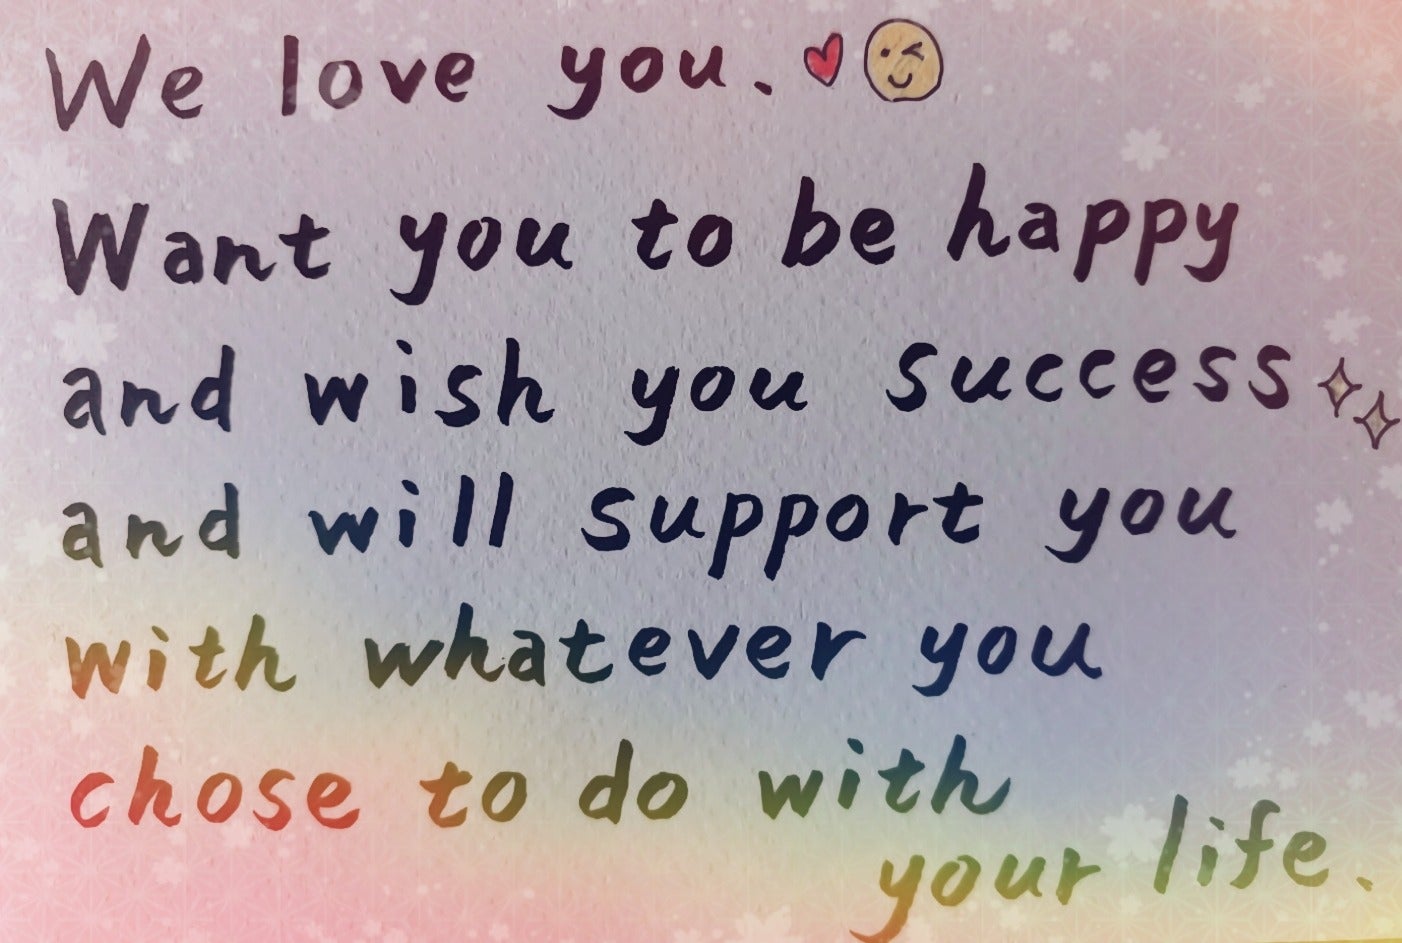 We love you.
Want you to be happy
and wish you success
and will support you
with whatever you
chose to do with
your life.